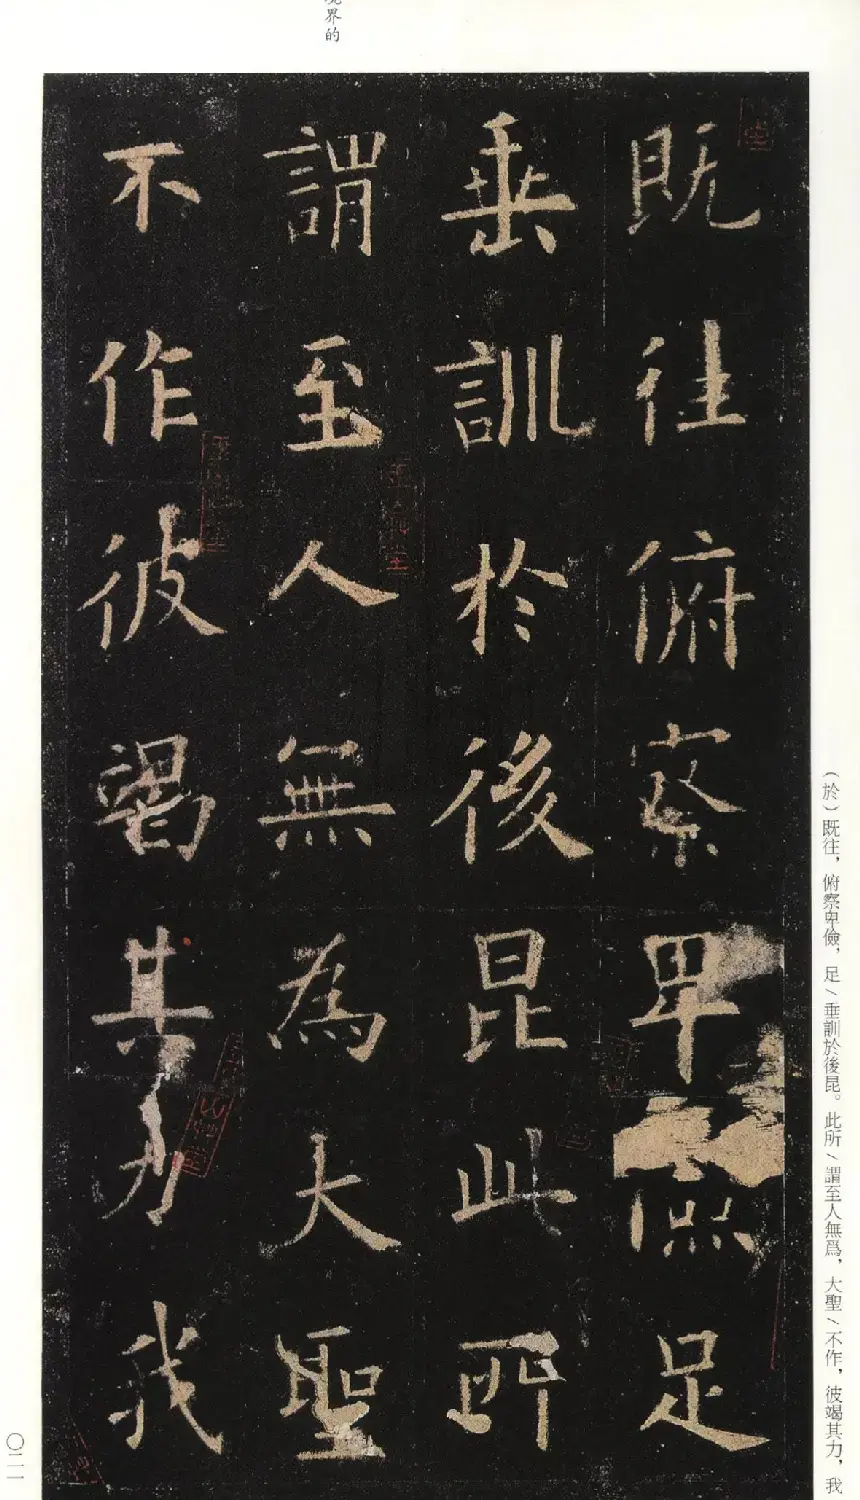 既往俯察卑儉足
垂訓於後昆此所
謂至人無為大聖
不作彼竭其力我
(於)既往，俯察卑儉，足/垂訓於後昆。此所/謂至人無爲，大聖/不作，彼竭其力，我
界的
〇二一